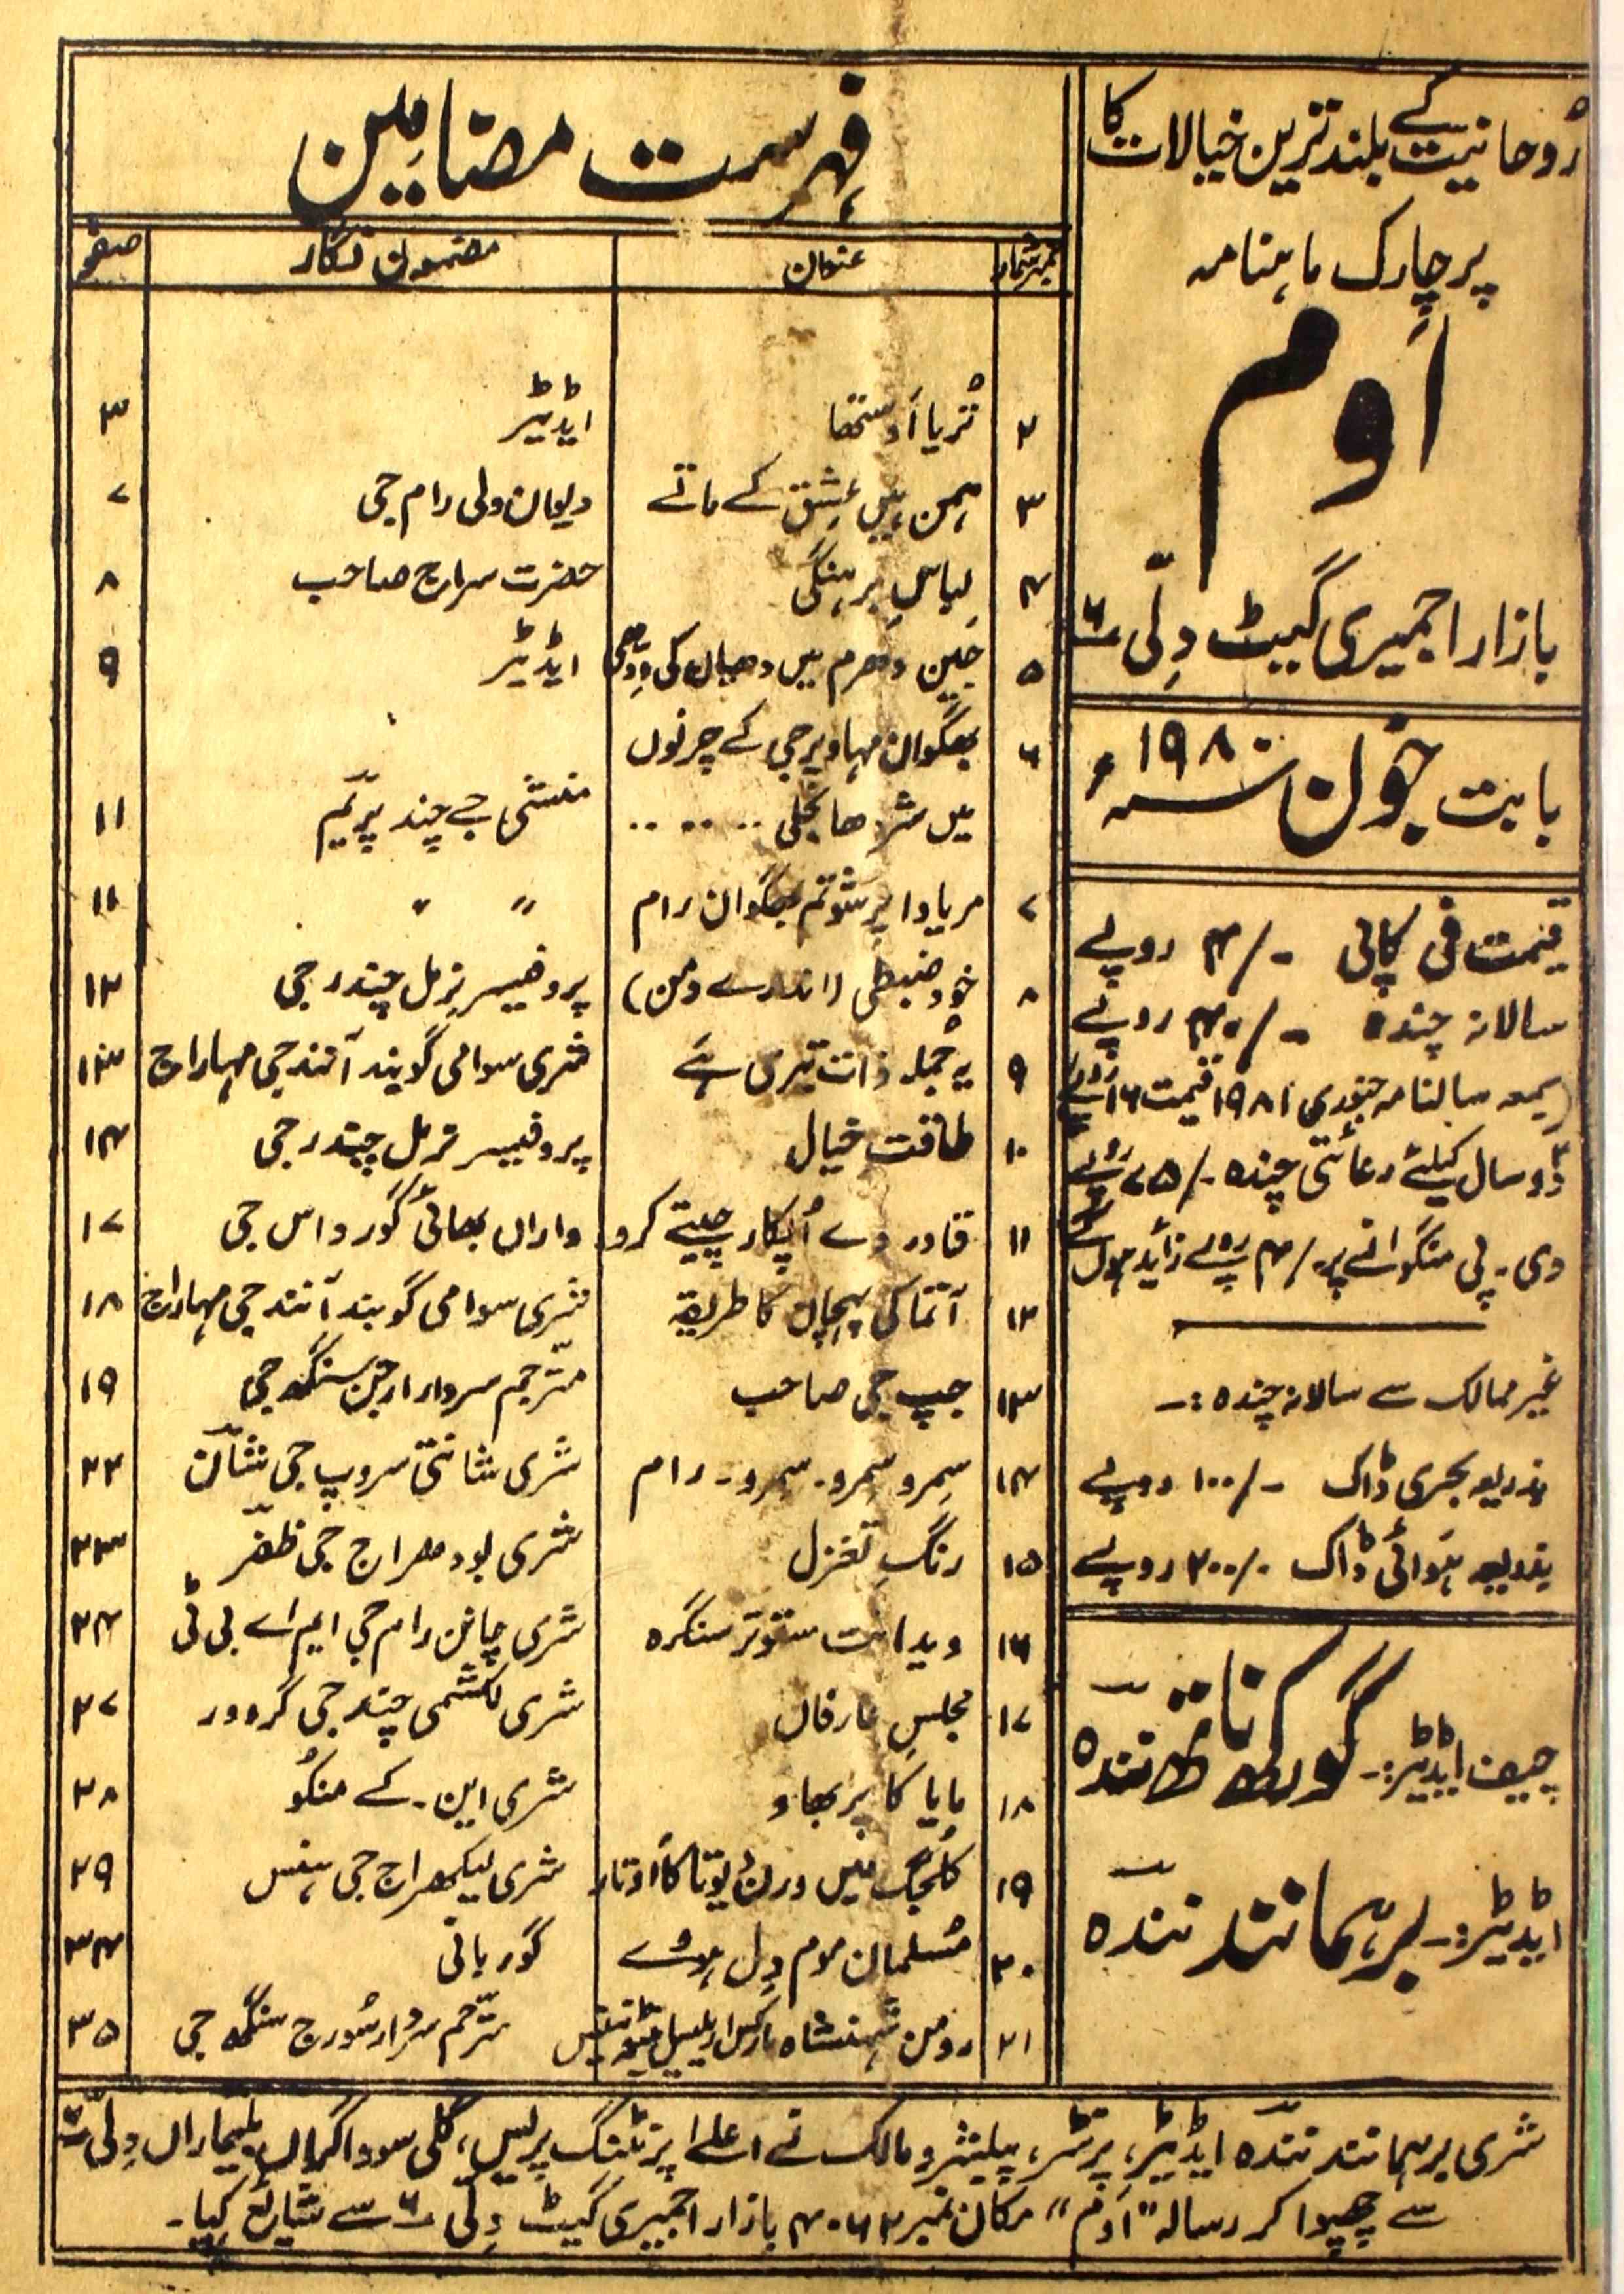 رُوحانیت کے بلند ترین خیالات کا
پرچارک ماہنامہ
اَوم
بازار اجمیری گیٹ دِلّی ۶
بابت جُون سنہ ۱۹۸۰ء
قیمت فی کاپی -/۴ روپے
سالانہ چندہ -/۴۰ روپے
(بمعہ سالنامہ جنوری ۱۹۸۱ قیمت ۱۶ روپے)
دو سال کیلئے رعائتی چندہ -/۷۵ روپے
وی۔پی منگوانے پر -/۴ روپے زائد ہوں گے
غیر ممالک سے سالانہ چندہ :۔
بذریعہ بحری ڈاک -/۱۰۰ روپے
بذریعہ ہَوائی ڈاک -/۲۰۰ روپے
چیف ایڈیٹر:۔ گورکھ ناتھ نندہ
ایڈیٹر:۔ برہمانند نندہ
فہرست مضامین
نمبرشمار عنوان مضمون نگار صفحہ
۲ تُریا اَوستھا ایڈیٹر ۳
۳ ہمن ہیں عشق کے ماتے دیوان ولی رام جی ۷
۴ لِباسِ برہنگی حضرت سراج صاحب ۸
۵ جین دھرم میں دھیان کی وِدھی ایڈیٹر ۹
۶ بھگوان مہاویر جی کے چرنوں
میں شردھانجلی .. .. .. منشی جے چند پریم ۱۱
۷ مریادا پرشوتم بھگوان رام " " ۱۱
۸ خود ضبطی (اندرے ومن) پروفیسر نرمل چندر جی ۱۲
۹ یہ جُملہ ذات تیری ہَے شری سوامی گوبند آنند جی مہاراج ۱۳
۱۰ طاقت خیال پروفیسر نرمل چندر جی ۱۴
۱۱ قادر دے اُپکار چیتے کرو واراں بھائی گورداس جی ۱۷
۱۲ آتما کی پہچان کا طریقہ شری سوامی گوبند آنند جی مہاراج ۱۸
۱۳ جپ جی صاحب مترجم سردار ارجن سنگھ جی ۱۹
۱۴ سِمرو سِمرو۔ سِمرو۔ رام شری شانتی سروپ جی شان ۲۲
۱۵ رنگِ تغزل شری بودھراج جی ظفر ۲۳
۱۶ ویدانت ستوتر سنگرہ شری چانن رام جی ایم اے بی ٹی ۲۴
۱۷ مجلسِ عارفاں شری لکشمی چند جی گروور ۲۷
۱۸ مایا کا پربھاو شری این۔کے منکُو ۲۸
۱۹ کلجگ میں ورن دیوتا کا اوتار شری لیکھراج جی ہنس ۲۹
۲۰ مُسلمان موم دِل ہووے گور بانی ۳۴
۲۱ رومن شہنشاہ مارکس اریلیس مترجم سردار سُورج سنگھ جی ۳۵
شری برہمانند نندہ ایڈیٹر، پرنٹر، پبلیشر و مالک نے اعلےٰ پرنٹنگ پریس، گلی سوداگراں بلیماراں دِلی ۶
سے چھپوا کر رسالہ "اَوم" مکان نمبر ۴۰۶۲ بازار اجمیری گیٹ دِلی ۶ سے شایع کِیا۔